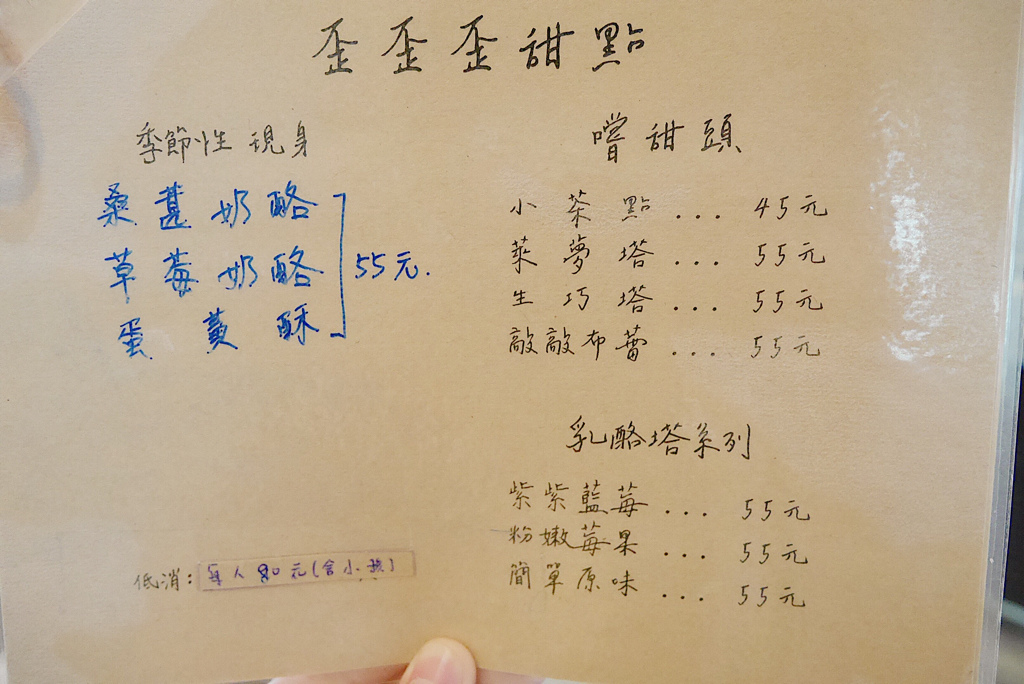 歪歪歪甜點
季節性現身
桑葚奶酪
草莓奶酪
蛋黃酥
55元.
嚐甜頭
小茶點...45元
萊夢塔...55元
生巧塔...55元
敲敲布蕾...55元
乳酪塔系列
紫紫藍莓...55元
粉嫩莓果...55元
簡單原味...55元
低消:每人80元(含小孩)